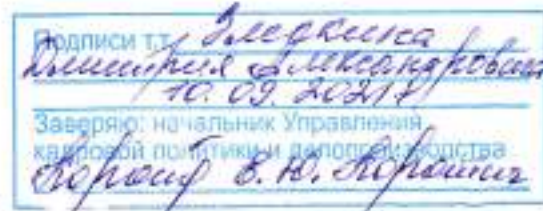 Подписи т.т.
Дмитрия Александровича
10.09.2021 г
Заверяю: начальник Управления
кадровой политики и делопроизводства
В.Ю.